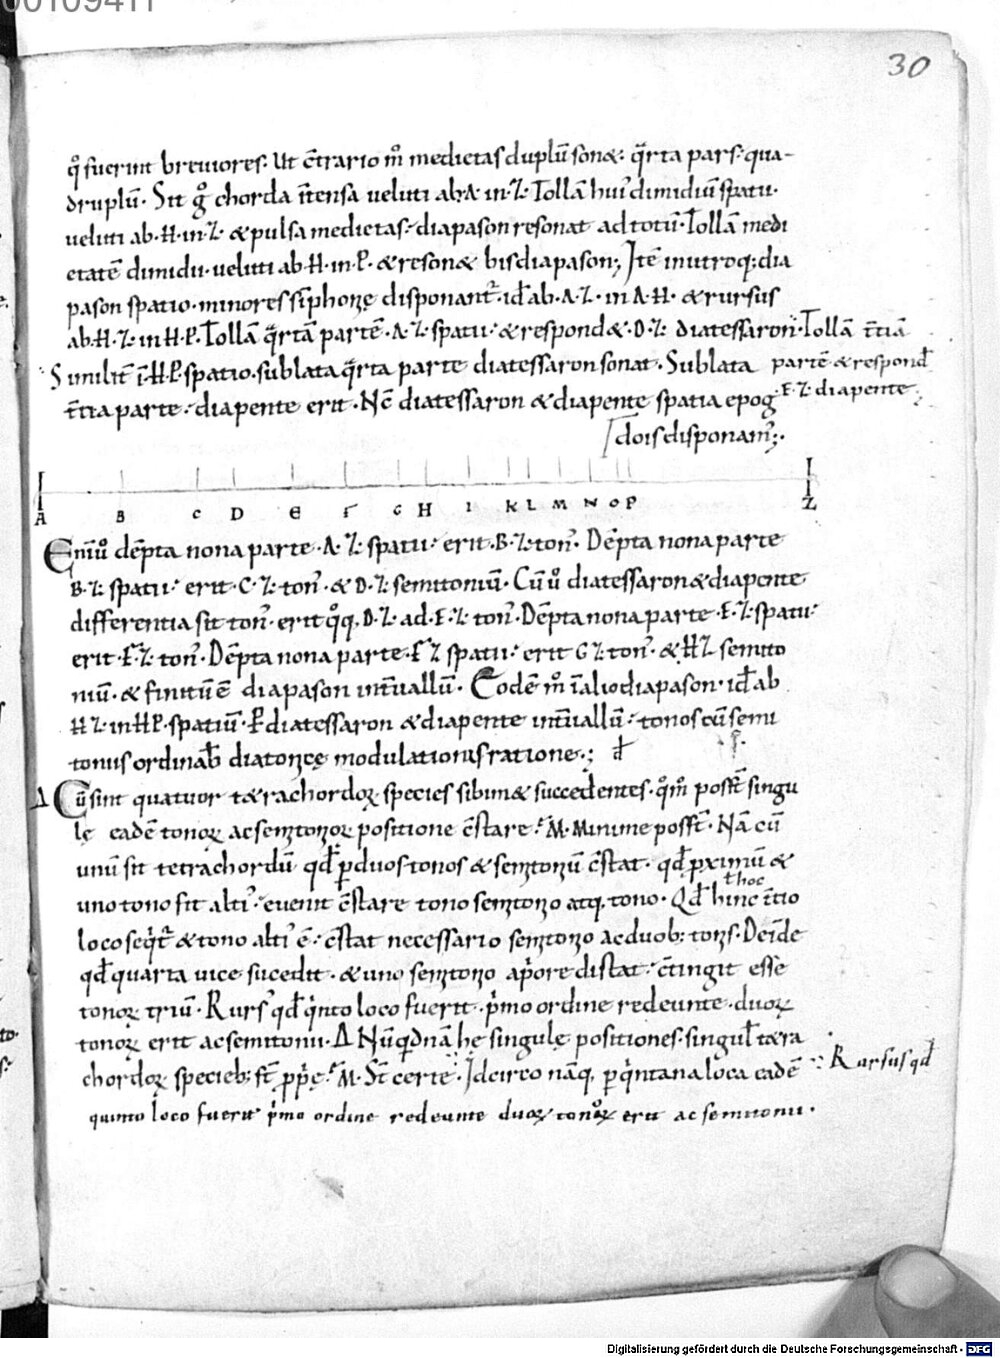 00109411
30
q̊ fuerint breuiores. Ut c̄trario m̊ medietas duplū sonæ. q̄rta pars. qua-
druplū. Sit g̊ chorda ītensa ueluti ab A in Z. Tollā hui' dimidiū spatii.
ueluti ab .H. in .Z. & pulsa medietas. diapason resonat ad totū. Tollā medi
etatē dimidii. ueluti ab .H. in .P. & resonæ bisdiapason; Itē in utroq; dia
pason spatio. minores sīphonię disponant̄. id ab .A. Z. in A. H. & rursus
ab .H. Z. in H. P. Tollā q̄rtā partē .A. Z. spatii. & respond&. D. Z. diatessaron. Tollā t̄tiā
partē & respond̄
E. Z. diapente.
Similit̄ ī .H. P. spatio. sublata q̄rta parte diatessaron sonat. Sublata
t̄tia parte. diapente erit. Nc̄ diatessaron & diapente spatia epog
dois disponam';.
A B C D E F G H I K L M N O P Z
Enīů dēpta nona parte .A. Z. spatii. erit .B. Z. ton'. Dēpta nona parte
B. Z. spatii. erit .C. Z. ton'. & D. Z. semitoniū. Cū ů diatessaron & diapente
differentia sit ton'. erit q̊q. D. Z. ad .E. Z. ton'. Dēpta nona parte .E. Z. spatii.
erit .F. Z. ton'. Dēpta nona parte .F Z spatii. erit G Z. ton'. & H Z semito
niū. & finitū ē diapason int̄uallū. Eodē m̊ ī alio diapason. id ab
H Z. in H P. spatiū. P diatessaron & diapente int̄uallū. tonos cū semi
tonus ordinab̄ diatonicę modulationis ratione.;
Δ Cū sint quatuor tærachordoꝝ species sibimæ succedentes. q̊m̊ poss̄t singu
lę eadē tonoꝝ ac semitonioꝝ positione c̄stare. M. Minime poss̄t. Nā cū
unū sit tetrachordū qd̄ p duos tonos & semitoniū c̄stat. qd̄ pximū &
uno tono fit alti'. euenit c̄stare tono semitonio atq, tono. Qd̄ hinc t̄tio
thoc
loco seq̄t̄ & tono alti' ē. c̄stat necessario semitonio ac duob; tonis. Deīde
qd̄ quarta uice sucedit. & uno semitonio a p'ore distat. c̄tingit esse
tonoꝝ triū. Rurs' qd̄ q'nto loco fuerit. p'mo ordine redeunte. duoꝝ
tonoꝝ erit ac semitonii. Δ Nūq'dnā hę singulę positiones. singul' tæra
chordoꝝ specieb; st̄ pp'ę. M. St̄ certe. Idcirco nāq, p q'ntana loca eadē
Rursus qd̄
quinto loco fuerit p'mo ordine redeunte duoꝝ tonoꝝ erit ac semitonii.
Digitalisierung gefördert durch die Deutsche Forschungsgemeinschaft - DFG